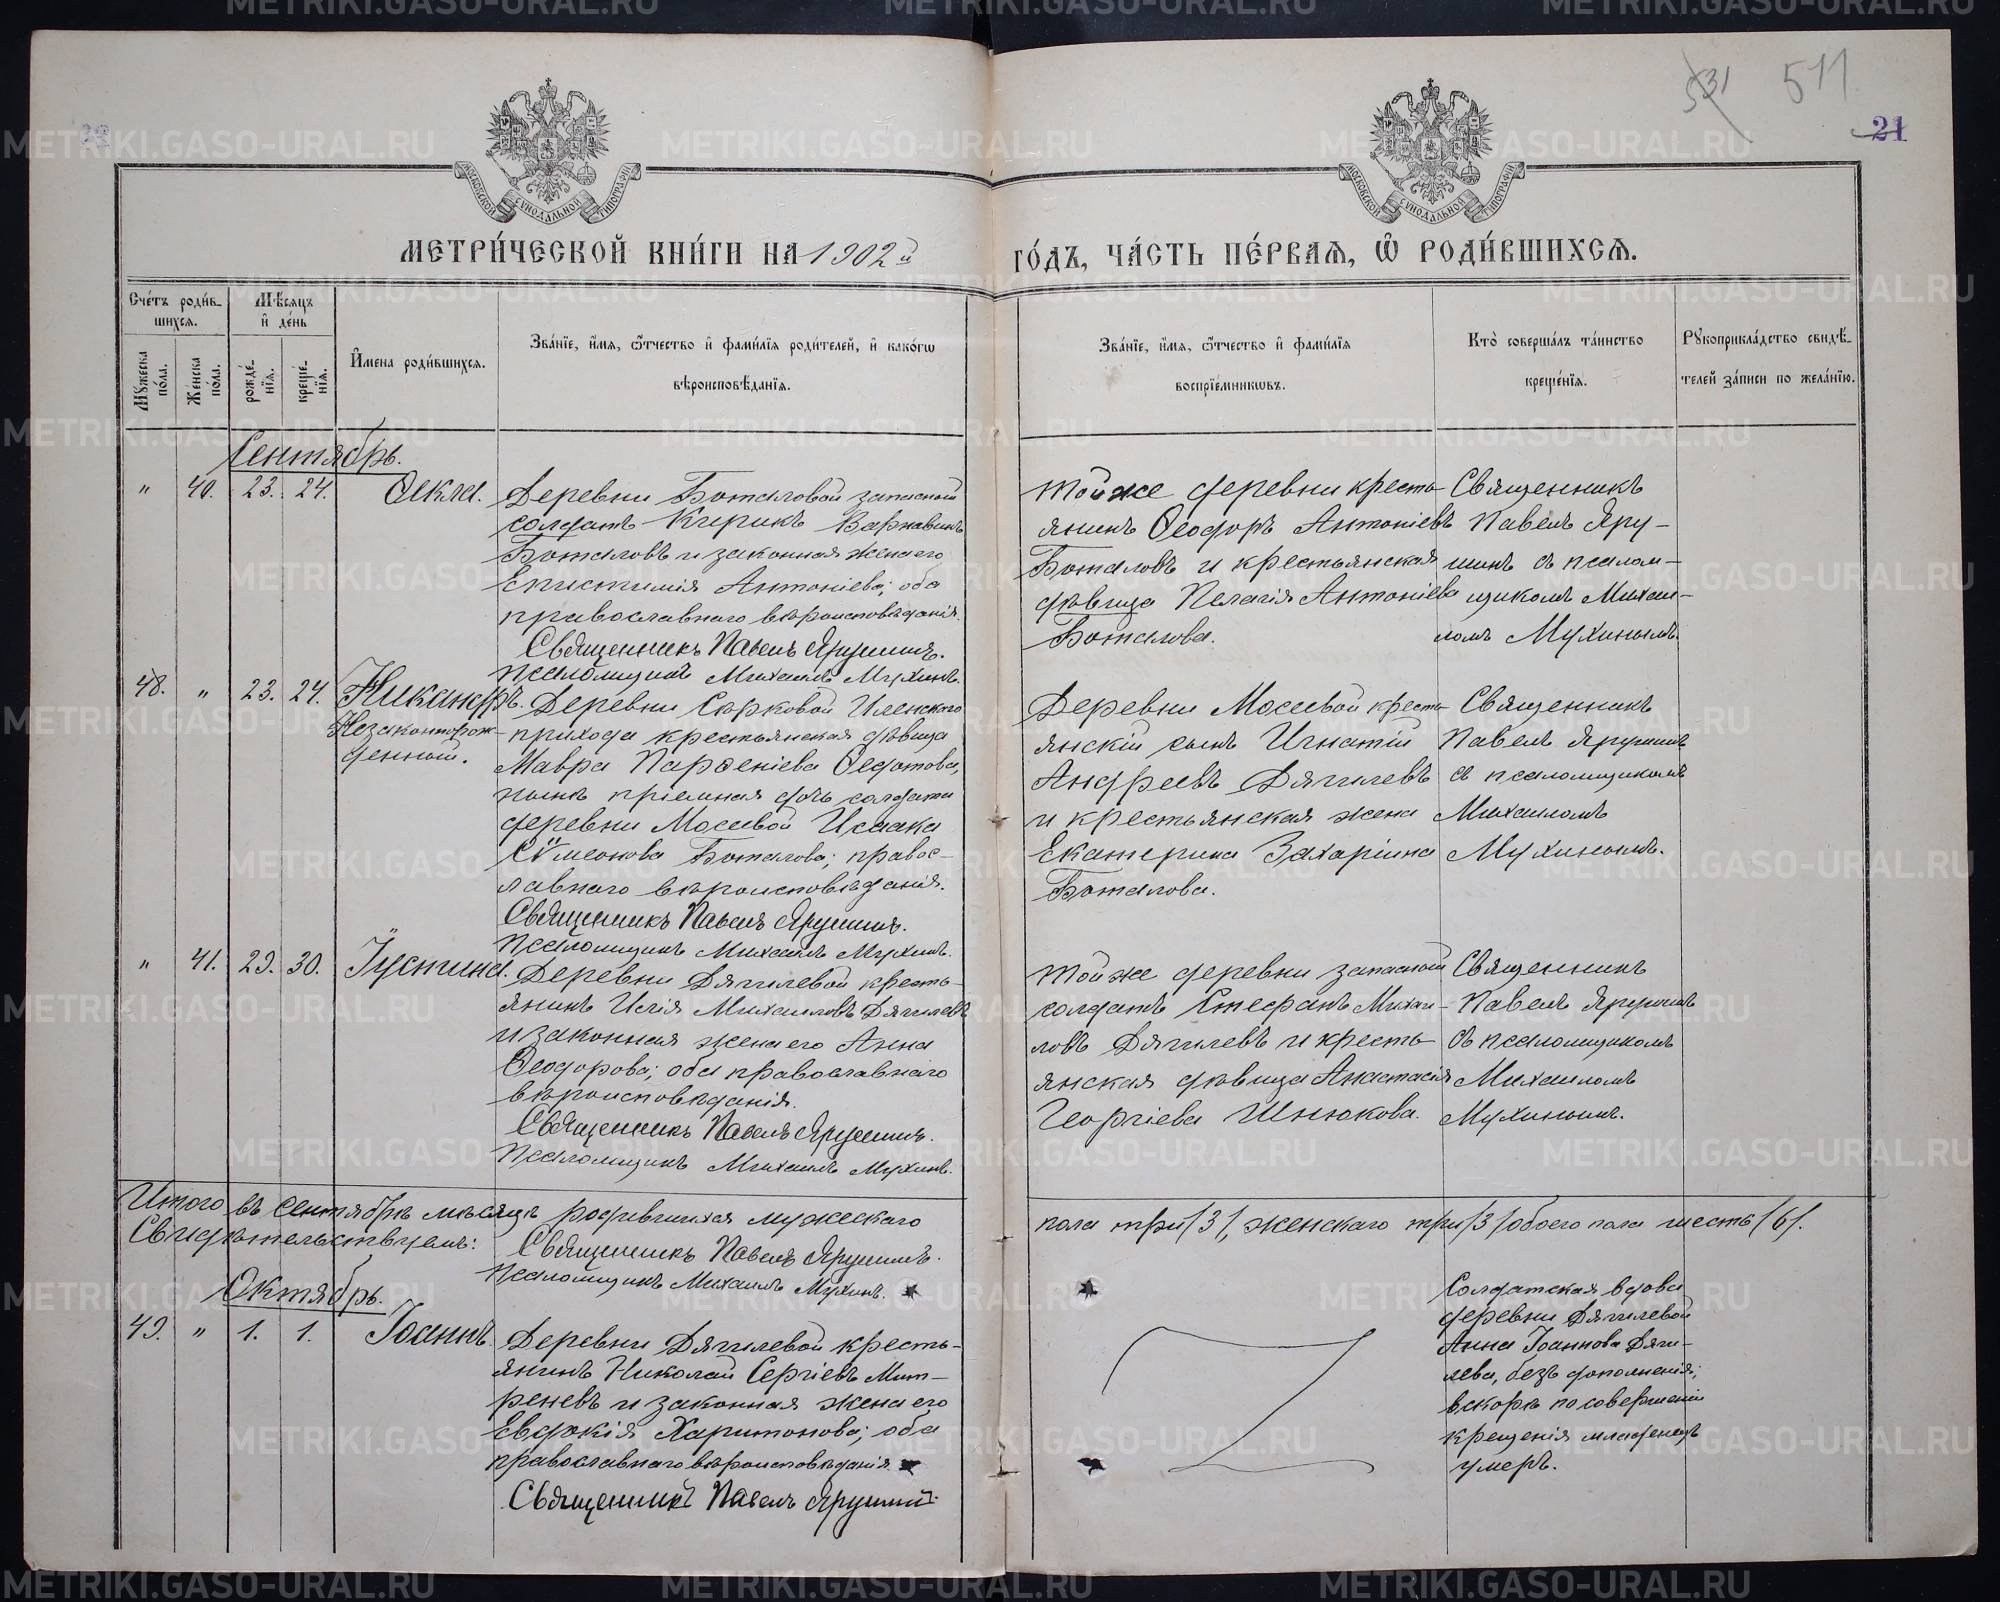 531 511
21
МЕТРИ́ЧЕСКОЙ КНИ́ГИ НА 1902й ГО́ДЪ, ЧА́СТЬ ПЕ́РВАЯ, Ѡ РОДИ́ВШИХСЯ.
Сче́тъ роди́в-
шихся.
Мѣ́сяцъ
и де́нь
Мꙋ́жеска по́ла.
Же́нска по́ла.
рожде́-
нїя.
креще́-
нїя.
И҆мена роди́вшихся.
Зва́нїе, и҆́мя, ѻ҆́тчество и҆ фами́лїя роди́телей, и҆ како́гѡ
вѣроисповѣ́данїя.
Зва́нїе, и҆́мя, ѻ҆́тчество и҆ фами́лїя
воспрїе́мникѡвъ.
Кто̀ соверша́лъ та́инство
креще́нїя.
Рꙋкоприкла́дство свидѣ́-
телей за́писи по жела́нїю.
Сентябрь.
" 40. 23. 24. Ѳекла.
Деревни Боталовой запасной
солдатъ Кирикъ Варнавинъ
Боталовъ и законная жена его
Епистимія Антоніева; оба
православнаго вѣроисповѣданія.
Священникъ Павелъ Ярушинъ.
Псаломщикъ Михаилъ Мухинъ.
Той же деревни кресть-
янинъ Ѳеодоръ Антоніевъ
Боталовъ и крестьянская
дѣвица Пелагія Антоніева
Боталова.
Священникъ
Павелъ Яру-
шинъ съ псалом-
щикомъ Михаи-
ломъ Мухинымъ.
48. " 23. 24. Никандръ.
Незаконнорож-
денный.
Деревни Сорковой Иленскаго
прихода крестьянская дѣвица
Мавра Парѳеніева Ѳедотова,
нынѣ пріемная дочь солдата
деревни Мосеевой Исаака
Сѵмеонова Боталова; правос-
лавнаго вѣроисповѣданія.
Священникъ Павелъ Ярушинъ.
Псаломщикъ Михаилъ Мухинъ.
Деревни Мосеевой кресть-
янскій сынъ Игнатій
Андреевъ Дягилевъ
и крестьянская жена
Екатерина Захаріина
Боталова.
Священникъ
Павелъ Ярушинъ
съ псаломщикомъ
Михаиломъ
Мухинымъ.
" 41. 29. 30. Іустина.
Деревни Дягилевой кресть-
янинъ Илія Михаиловъ Дягилевъ
и законная жена его Анна
Ѳеодорова; оба православнаго
вѣроисповѣданія.
Священникъ Павелъ Ярушинъ.
Псаломщикъ Михаилъ Мухинъ.
Той же деревни запасной
солдатъ Стефанъ Михаи-
ловъ Дягилевъ и кресть-
янская дѣвица Анастасія
Георгіева Шнюкова.
Священникъ
Павелъ Ярушинъ
съ псаломщикомъ
Михаиломъ
Мухинымъ.
Итого въ сентябрѣ мѣсяцѣ родившихся мужескаго пола три /3/, женскаго три /3/ обоего пола шесть /6/.
Свидѣтельствуемъ: Священникъ Павелъ Ярушинъ.
Псаломщикъ Михаилъ Мухинъ.
Октябрь.
49. " 1. 1. Іоаннъ.
Деревни Дягилевой кресть-
янинъ Николай Сергіевъ Мит-
реневъ и законная жена его
Евдокія Харитонова; оба
православнаго вѣроисповѣданія.
Священникъ Павелъ Ярушинъ.
Солдатская вдова
деревни Дягилевой
Анна Іоаннова Дяги-
лева, безъ дополненія;
вскорѣ по совершеніи
крещенія младенецъ
умеръ.